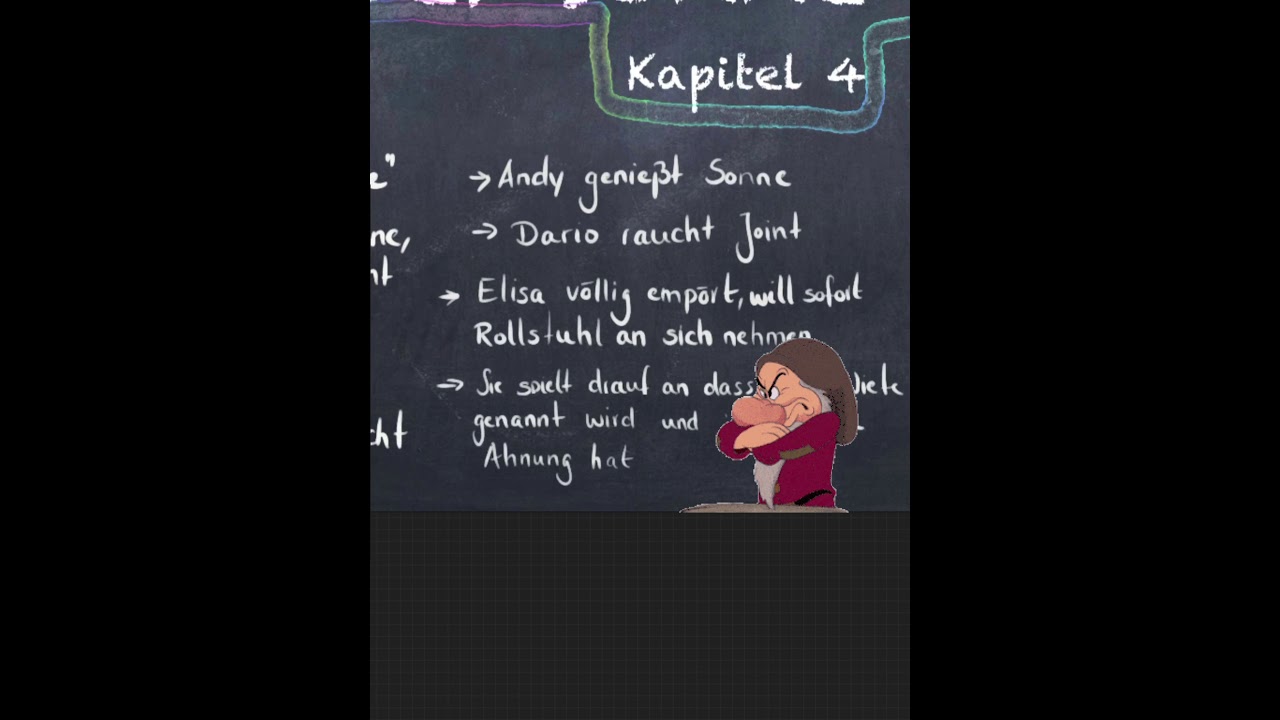 Kapitel 4
e"
→ Andy genießt Sonne
ne,
→ Dario raucht Joint
ht
→ Elisa völlig empört, will sofort
Rollstuhl an sich nehmen
→ Sie spielt drauf an dass
genannt wird und
cht
Ahnung hat